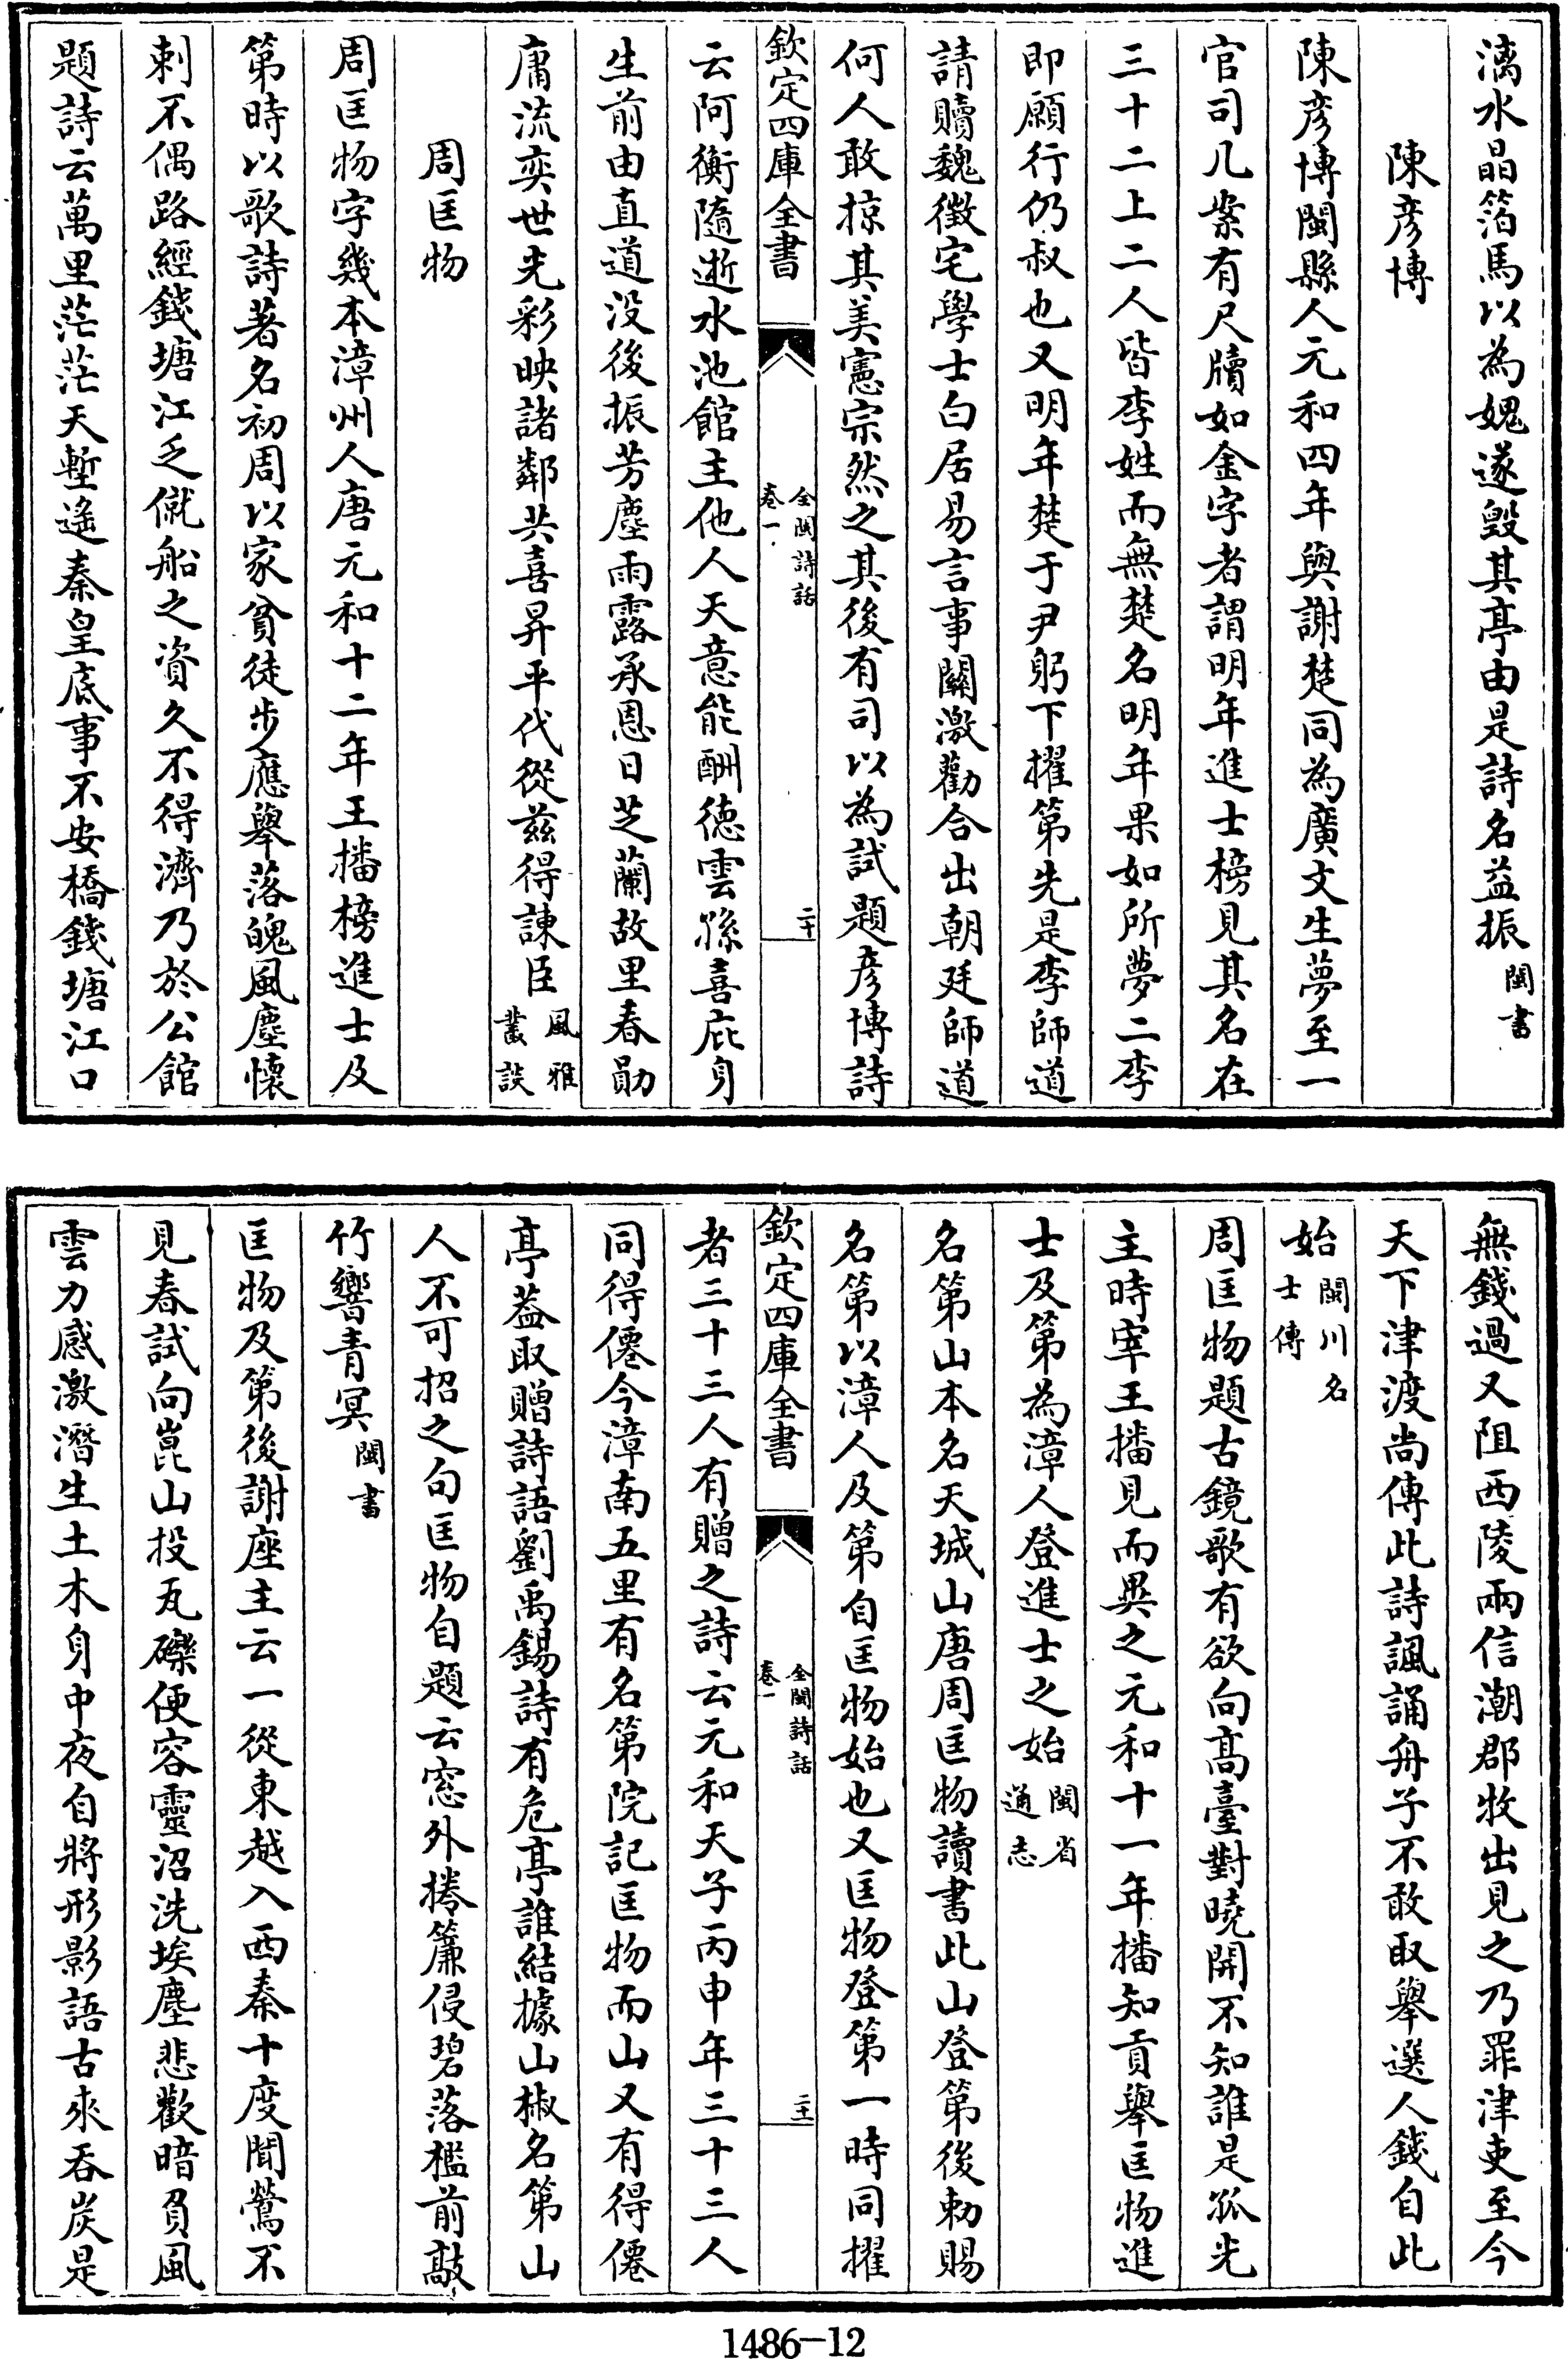 漓水晶箔馬以為媿遂毀其亭由是詩名益振閩書
陳彦博
陳彦博閩縣人元和四年與謝楚同為廣文生夢至一
官司几案有尺牘如金字者謂明年進士榜見其名在
三十二上二人皆李姓而無楚名明年果如所夢二李
即願行仍叔也又明年楚于尹躬下擢第先是李師道
請贖魏徵宅學士白居易言事關激勸合出朝廷師道
何人敢掠其美憲宗然之其後有司以為試題彦博詩
欽定四庫全書
全閩詩話
卷一
二十
云阿衡隨逝水池館主他人天意能酬徳雲孫喜庇身
生前由直道没後振芳塵雨露承恩日芝蘭故里春勛
庸流奕世光彩映諸鄰共喜昇平代從兹得諌臣風雅叢談
周匡物
周匡物字幾本漳州人唐元和十二年王播榜進士及
第時以歌詩著名初周以家貧徒步應舉落魄風塵懷
刺不偶路經錢塘江乏僦船之資久不得濟乃於公館
題詩云萬里茫茫天塹遙秦皇底事不安橋錢塘江口
無錢過又阻西陵兩信潮郡牧出見之乃罪津吏至今
天下津渡尚傳此詩諷誦舟子不敢取舉選人錢自此
始閩川名士傳
周匡物題古鏡歌有欲向髙臺對曉開不知誰是孤光
主時宰王播見而異之元和十一年播知貢舉匡物進
士及第為漳人登進士之始閩省通志
名第山本名天城山唐周匡物讀書此山登第後勅賜
名第以漳人及第自匡物始也又匡物登第一時同擢
欽定四庫全書
全閩詩話
卷一
二十一
者三十三人有贈之詩云元和天子丙申年三十三人
同得僊今漳南五里有名第院記匡物而山又有得僊
亭葢取贈詩語劉禹錫詩有危亭誰結據山椒名第山
人不可招之句匡物自題云窓外捲簾侵碧落檻前敲
竹響青冥閩書
匡物及第後謝座主云一從東越入西秦十度聞鶯不
見春試向崑山投瓦礫便容靈沼洗埃塵悲歡暗負風
雲力感激潛生土木身中夜自將形影語古來吞炭是
1486-12